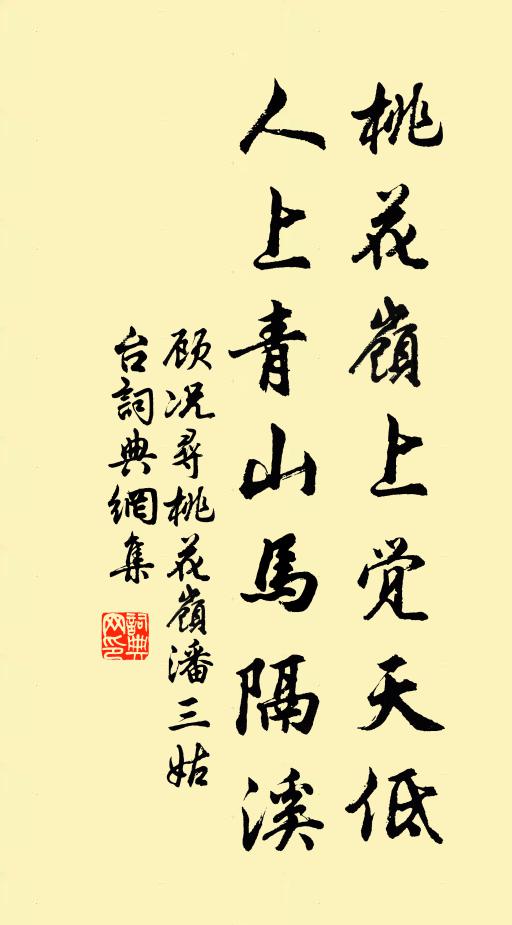 桃花嶺上觉天低
人上青山馬隔溪
顾况尋桃花嶺潘三姑
台詞典網集
詞典
网印